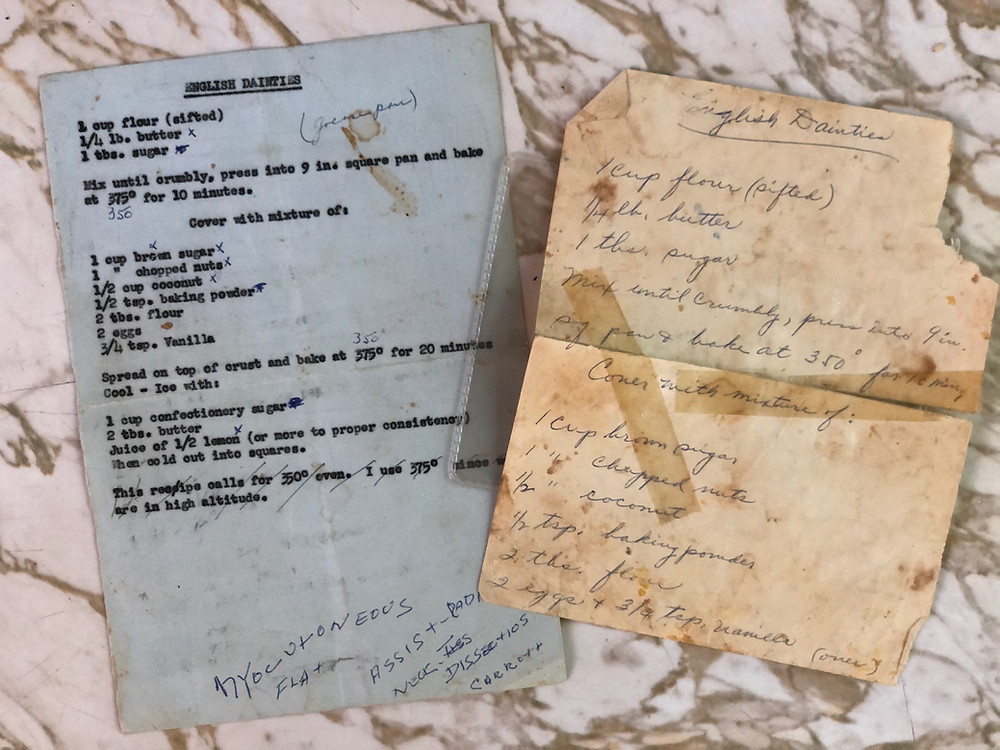 ENGLISH DAINTIES
(Grease pan)
1 cup flour (sifted)
1/4 lb. butter x
1 tbs. sugar x
Mix until crumbly, press into 9 in. square pan and bake
at 375° for 10 minutes.
350
Cover with mixture of:
1 cup brown sugar x
1 " chopped nuts x
1/2 cup coconut x
1/2 tsp. baking powder x
2 tbs. flour
2 eggs
3/4 tsp. Vanilla
350°
Spread on top of crust and bake at 375° for 20 minutes
Cool - Ice with:
1 cup confectionery sugar
2 tbs. butter
Juice of 1/2 lemon (or more to proper consistency)
When cold cut into squares.
This recipe calls for 350° oven. I use 375° since
are in high altitude.
FLAT
ASSIST-RADI
NECK-
DISSECTIOS
English Dainties
1 cup flour (sifted)
1/4 lb. butter
1 tbs. sugar
Mix until crumbly, press into 9 in.
sq pan & bake at 350° for 10 min,
Cover with mixture of:
1 cup brown sugar
1 " chopped nuts
1/2 " coconut
1/2 tsp. baking powder
2 tbs. flour
2 eggs + 3/4 tsp. vanilla
(over)